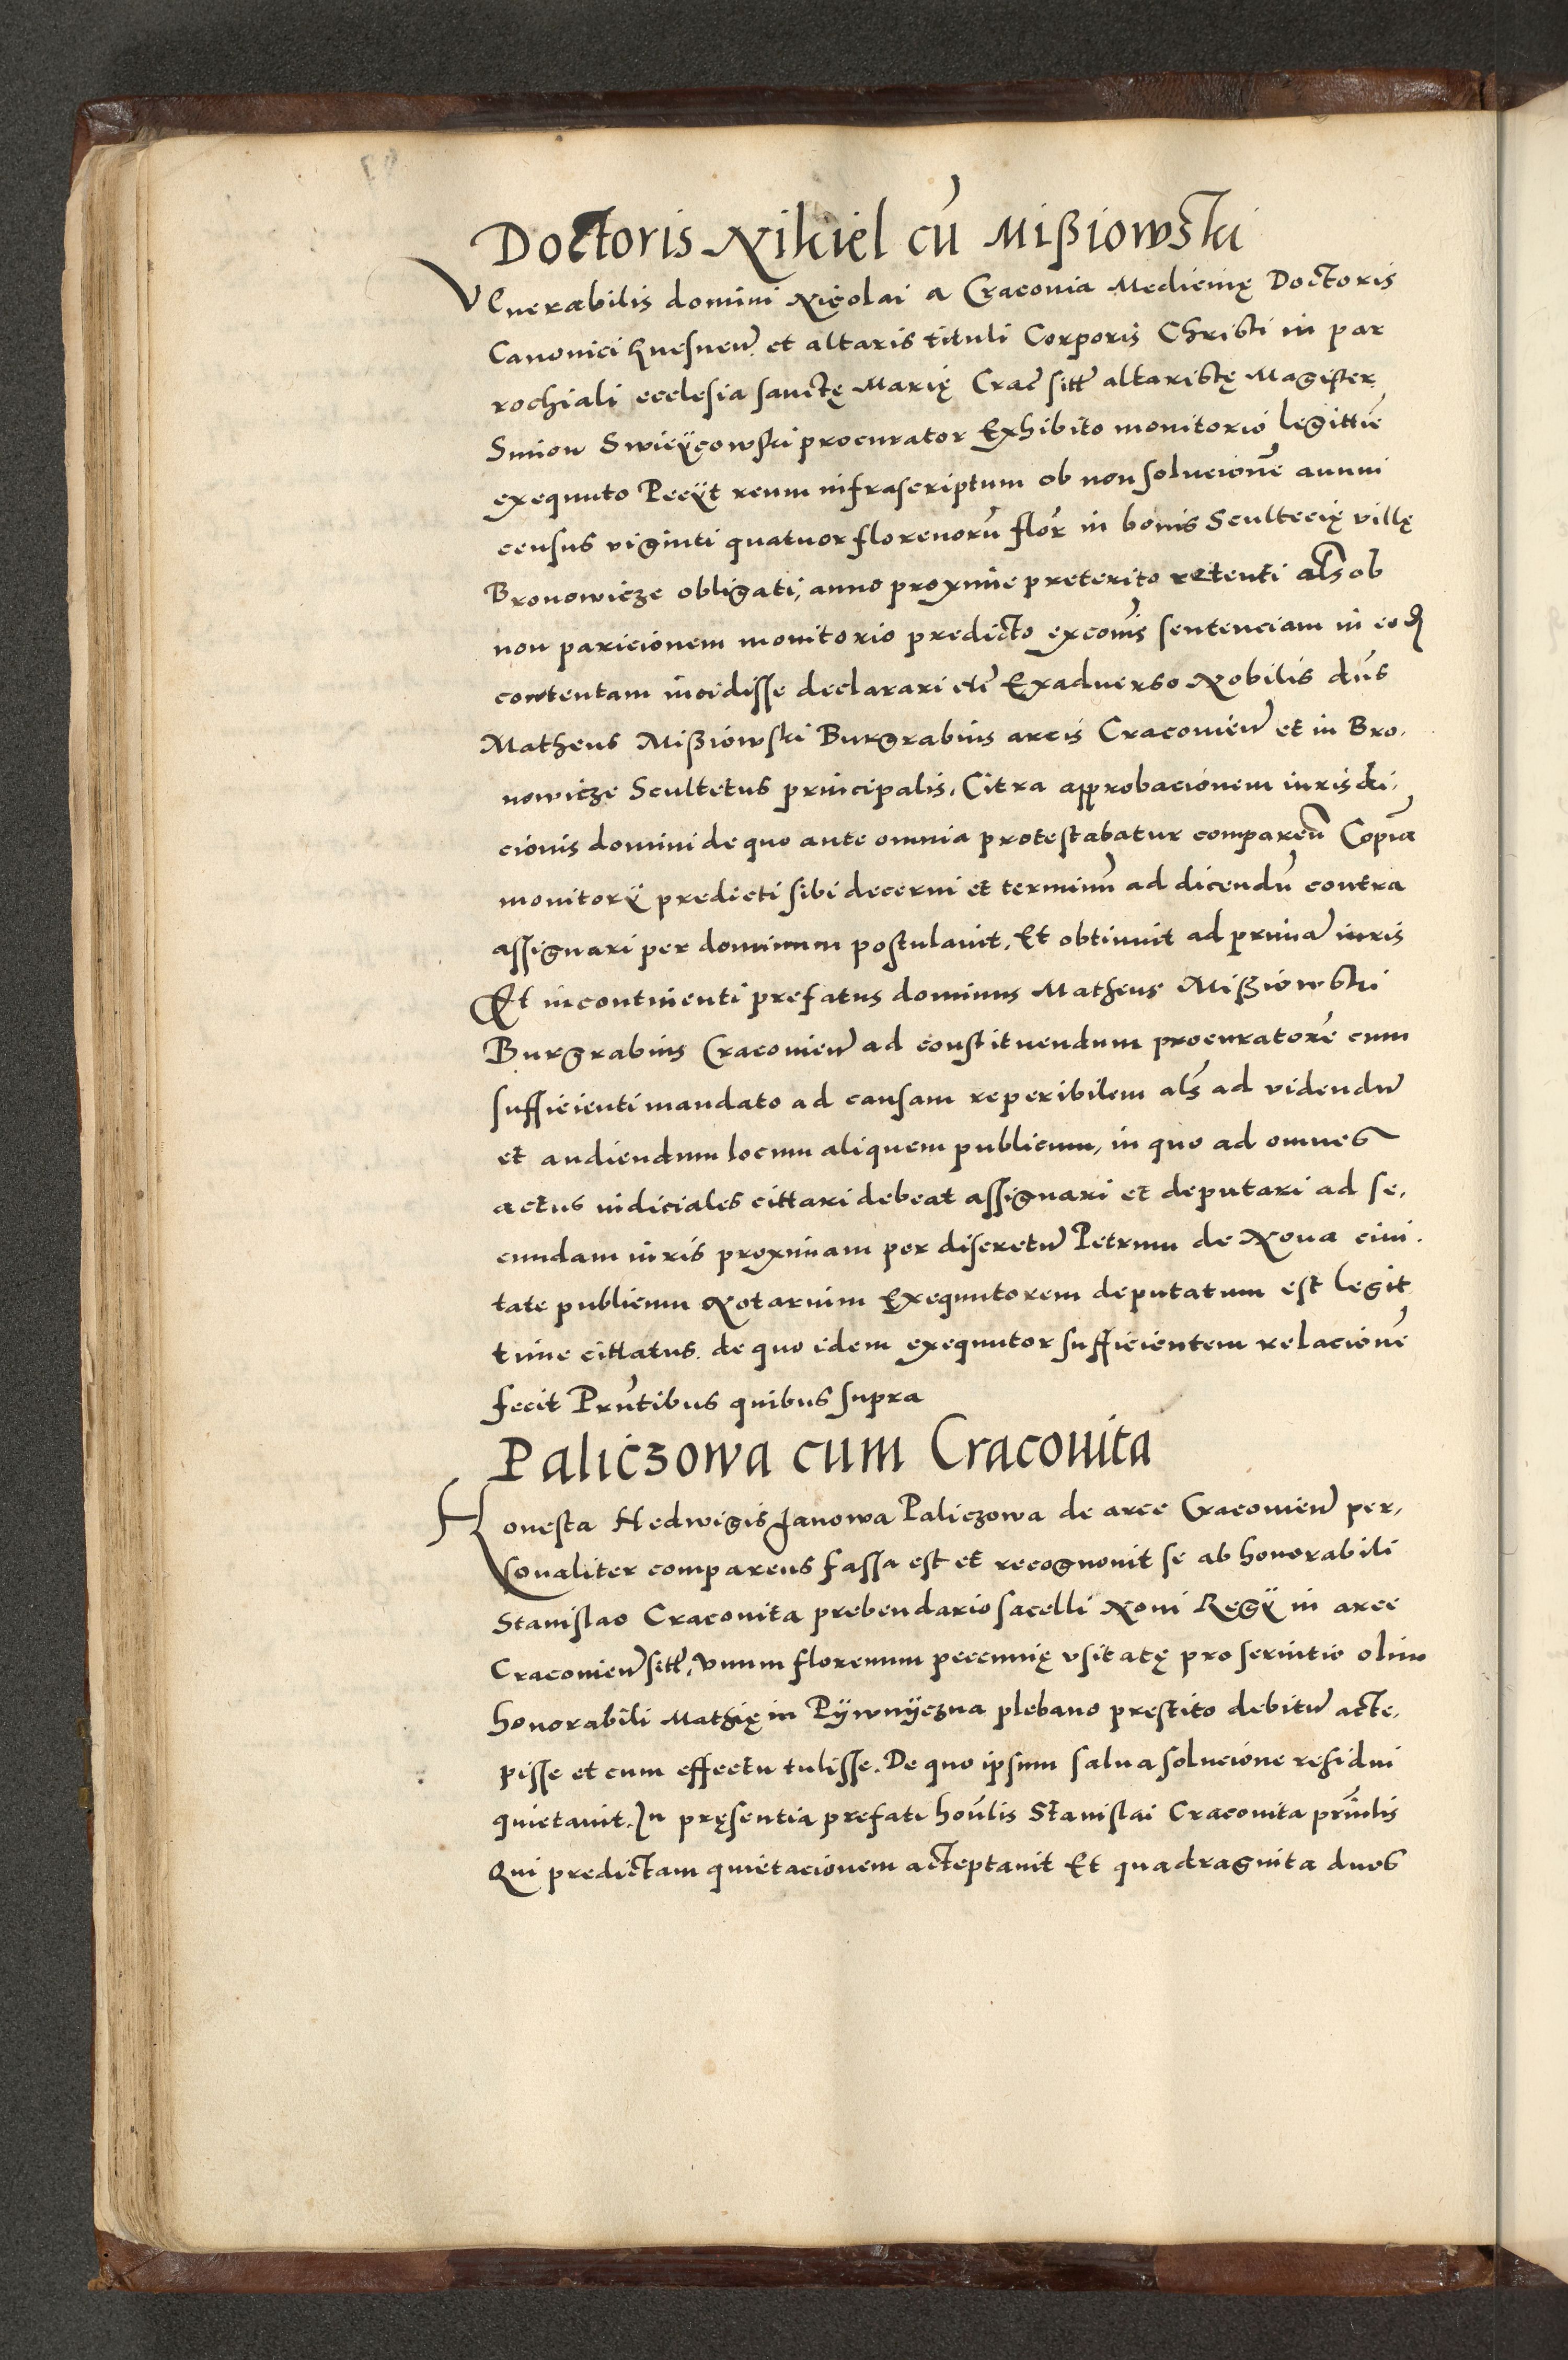 Doctoris Nikiel cū Mißiowski
Venerabilis domini Nicolai a Cracovia Medicinę Doctoris
Canonici Gnesnen̄ et altaris tituli Corporis Christi in par
rochiali ecclesia sanctę Marię Crac̄ sitt̄ altaristę Magister
Simon Swieÿcowski procurator Exhibito monitorio legittīe
exequuto Peeÿt reum infrascriptum ob non solucionē annui
census viginti quatuor florenorū flor̄ in bonis Scultecię villę
Bronowicze obligati, anno proxime preterito retenti als̄ ob
non paricionem monitorio predicto excom̄is sentenciam in eod̄
contentam incidisse declarari etc̄ Exaduerso Nobilis dūs
Matheus Mißiowski Burgrabius arcis Cracovien̄ et in Bro,
nowicze Scultetus principalis, Citra approbacionem iurisdi,
cionis domini de quo ante omnia protestabatur comparen̄ Copiā
monitorÿ predicti sibi decerni et terminū ad dicendū contra
assignari per dominum postulavit, Et obtinuit ad primā iuris
Et incontinenti prefatus dominus Matheus Mißiowski
Burgrabius Cracovien̄ ad constituendum procuratorē cum
sufficienti mandato ad causam reperibilem als̄ ad videndū
et audiendum locum aliquem publicum, in quo ad omnes
actus iudiciales cittari debeat assignari et deputari ad se,
cundam iuris proximam per discretū Petrum de Nova civi,
tate publicum Notarium Exequutorem deputatum est legit
time cittatus. de quo idem exequutor sufficientem relacionē
fecit Prn̄tibus quibus supra
Paliczowa cum Cracovita
Honesta Hedwigis Janowa Paliczowa de arce Cracovien̄ per,
sonaliter comparens fassa est et recognovit se ab honorabili
Stanislao Cracovita prebendario sacelli Novi Regÿ in arce
Cracovien̄ sitt̄, vnum florenum pecunię vsitatę pro servitio olim
honorabili Mathię in Pÿwnÿczna plebano prestito debitū acte,
pisse et cum effectu tulisse. De quo ipsum salva solucione residui
quietavit. In pręsentia prefati hon̄lis Stanislai Cracovita prn̄lis
Qui predictam quietacionem acteptavit Et quadraginta duos